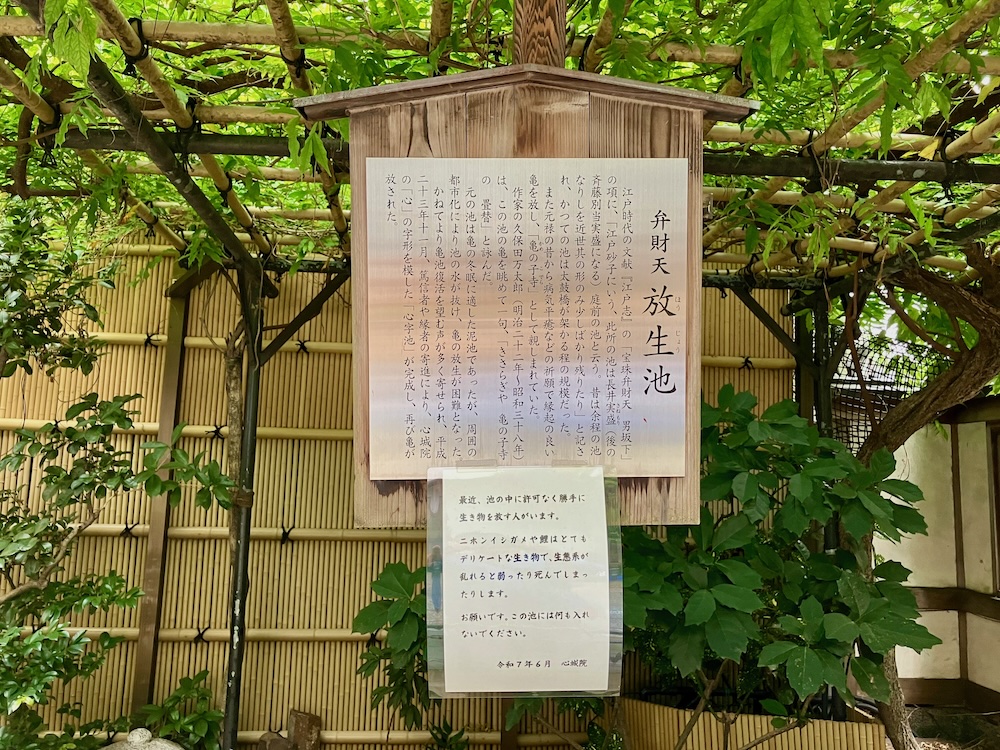 弁財天 放生池
ほう じょう
江戸時代の文献『江戸志』の「宝珠弁財天 男坂下」
の項に、「江戸砂子にいう、此所の池は長井実盛(後の
斉藤別当実盛になる)庭前の池と云う。昔は余程の池
なりしを近世其の形のみ少しばかり残りたり」と記さ
れ、かつての池は太鼓橋が架かる程の規模だった。
また元禄の昔から病気平癒などの祈願で縁起の良い
亀を放し、「亀の子寺」として親しまれていた。
作家の久保田万太郎(明治二十二年〜昭和三十八年)
は、この池の亀を眺めて一句、「きさらぎや 亀の子寺
の、畳替」と詠んだ。
元の池は亀の冬眠に適した泥池であったが、周囲の
都市化により池の水が抜け、亀の放生が困難となった
かねてより亀池復活を望む声が多く寄せられ、平成
二十三年十一月、篤信者や縁者の寄進により、心城院
の「心」の字形を模した「心字池」が完成し、再び亀が
放された。
最近、池の中に許可なく勝手に
生き物を放す人がいます。
ニホンイシガメや鯉はとても
デリケートな生き物で、生態系が
乱れると弱ったり死んでしまっ
たりします。
お願いです。この池には何も入れ
ないでください。
令和7年6月 心城院